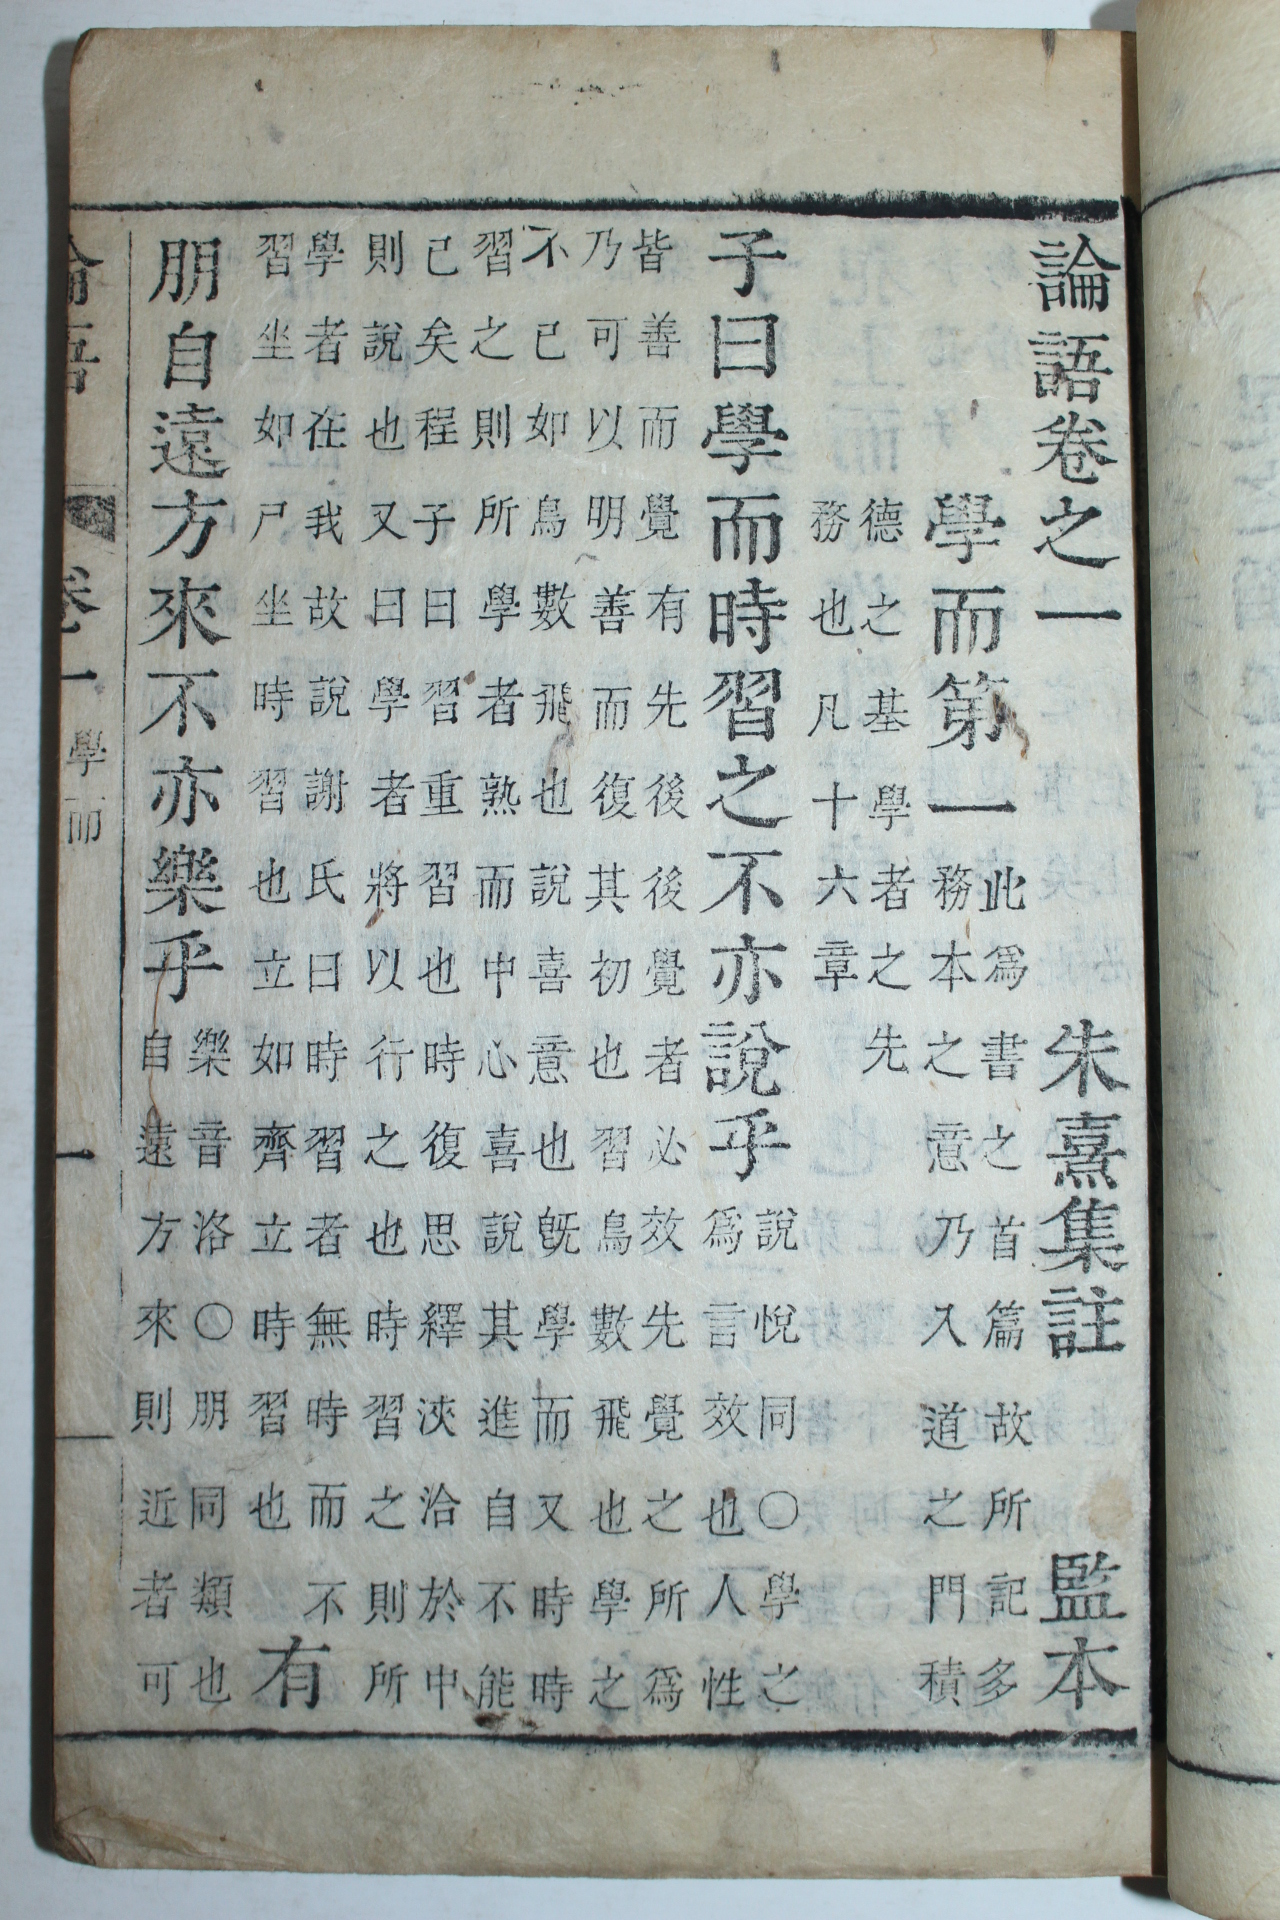 論語卷之一 朱熹集註 監本
學而第一
此爲書之首篇故所記多
務本之意乃入道之門積
德之基學者之先
務也凡十六章
子曰學而時習之不亦說乎
說悅同○學之
爲言效也人性
皆善而覺有先後後覺者必效先覺之所爲
乃可以明善而復其初也習鳥數飛也學之
不已如鳥數飛也說喜意也旣學而又時時
習之則所學者熟而中心喜說其進自不能
已矣程子曰習重習也時復思繹浹洽於中
則說也又曰學者將以行之也時習之則所
學者在我故說謝氏曰時習者無時而不
習坐如尸坐時習也立如齊立時習也
有
朋自遠方來不亦樂乎
樂音洛○朋同類也
自遠方來則近者可
論語 卷一 學而 一